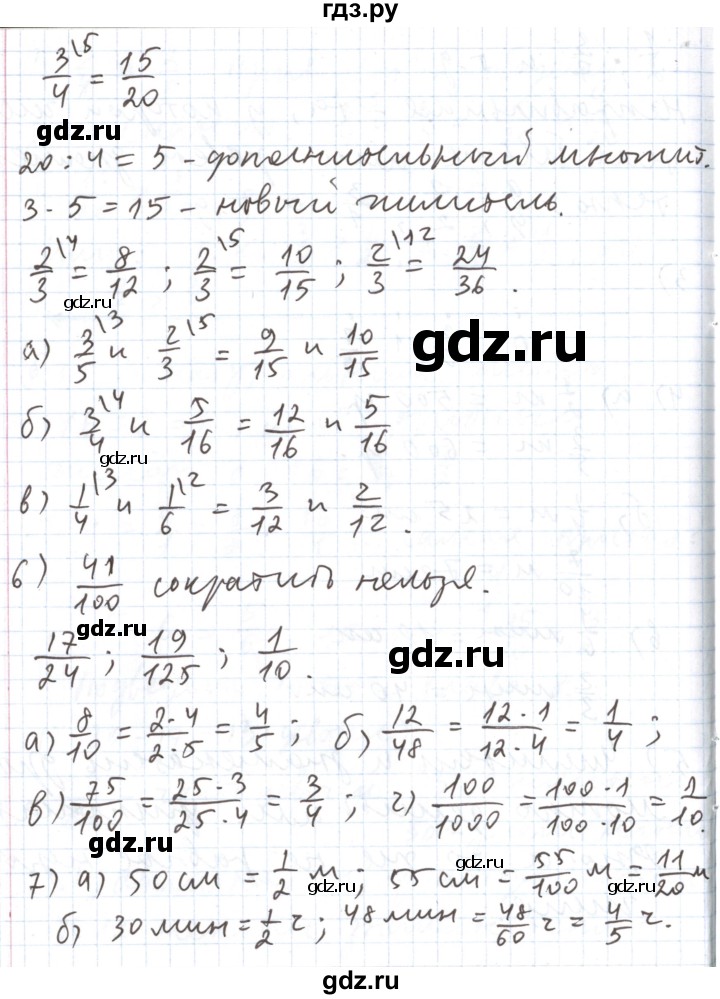 гдз.ру
3\5/4 = 15/20
gdz.ru
20 : 4 = 5 - дополнительный множит.
3 · 5 = 15 - новый числитель.
2\4/3 = 8/12 ; 2\5/3 = 10/15 ; 2\12/3 = 24/36 .
gdz.ru gdz.ru
а) 3\3/5 и 2\5/3 = 9/15 и 10/15 gdz.ru
б) 3\4/4 и 5/16 = 12/16 и 5/16
gdz.ru gdz.ru
в) 1\3/4 и 1\2/6 = 3/12 и 2/12 .
6) 41/100 сократить нельзя.
gdz.ru
17/24 ; 19/125 ; 1/10 . gdz.ru
а) 8/10 = 2·4/2·5 = 4/5 ; б) 12/48 = 12·1/12·4 = 1/4 ;
в) 75/100 = 25·3/25·4 = 3/4 ; г) 100/1000 = 100·1/100·10 = 1/10.
gdz.ru
7) а) 50 см = 1/2 м ; 55 см = 55/100 м = 11/20 м
gdz.ru gdz.ru gdz.ru
б) 30 мин = 1/2 ч ; 48 мин = 48/60 ч = 4/5 ч.
gdz.ru